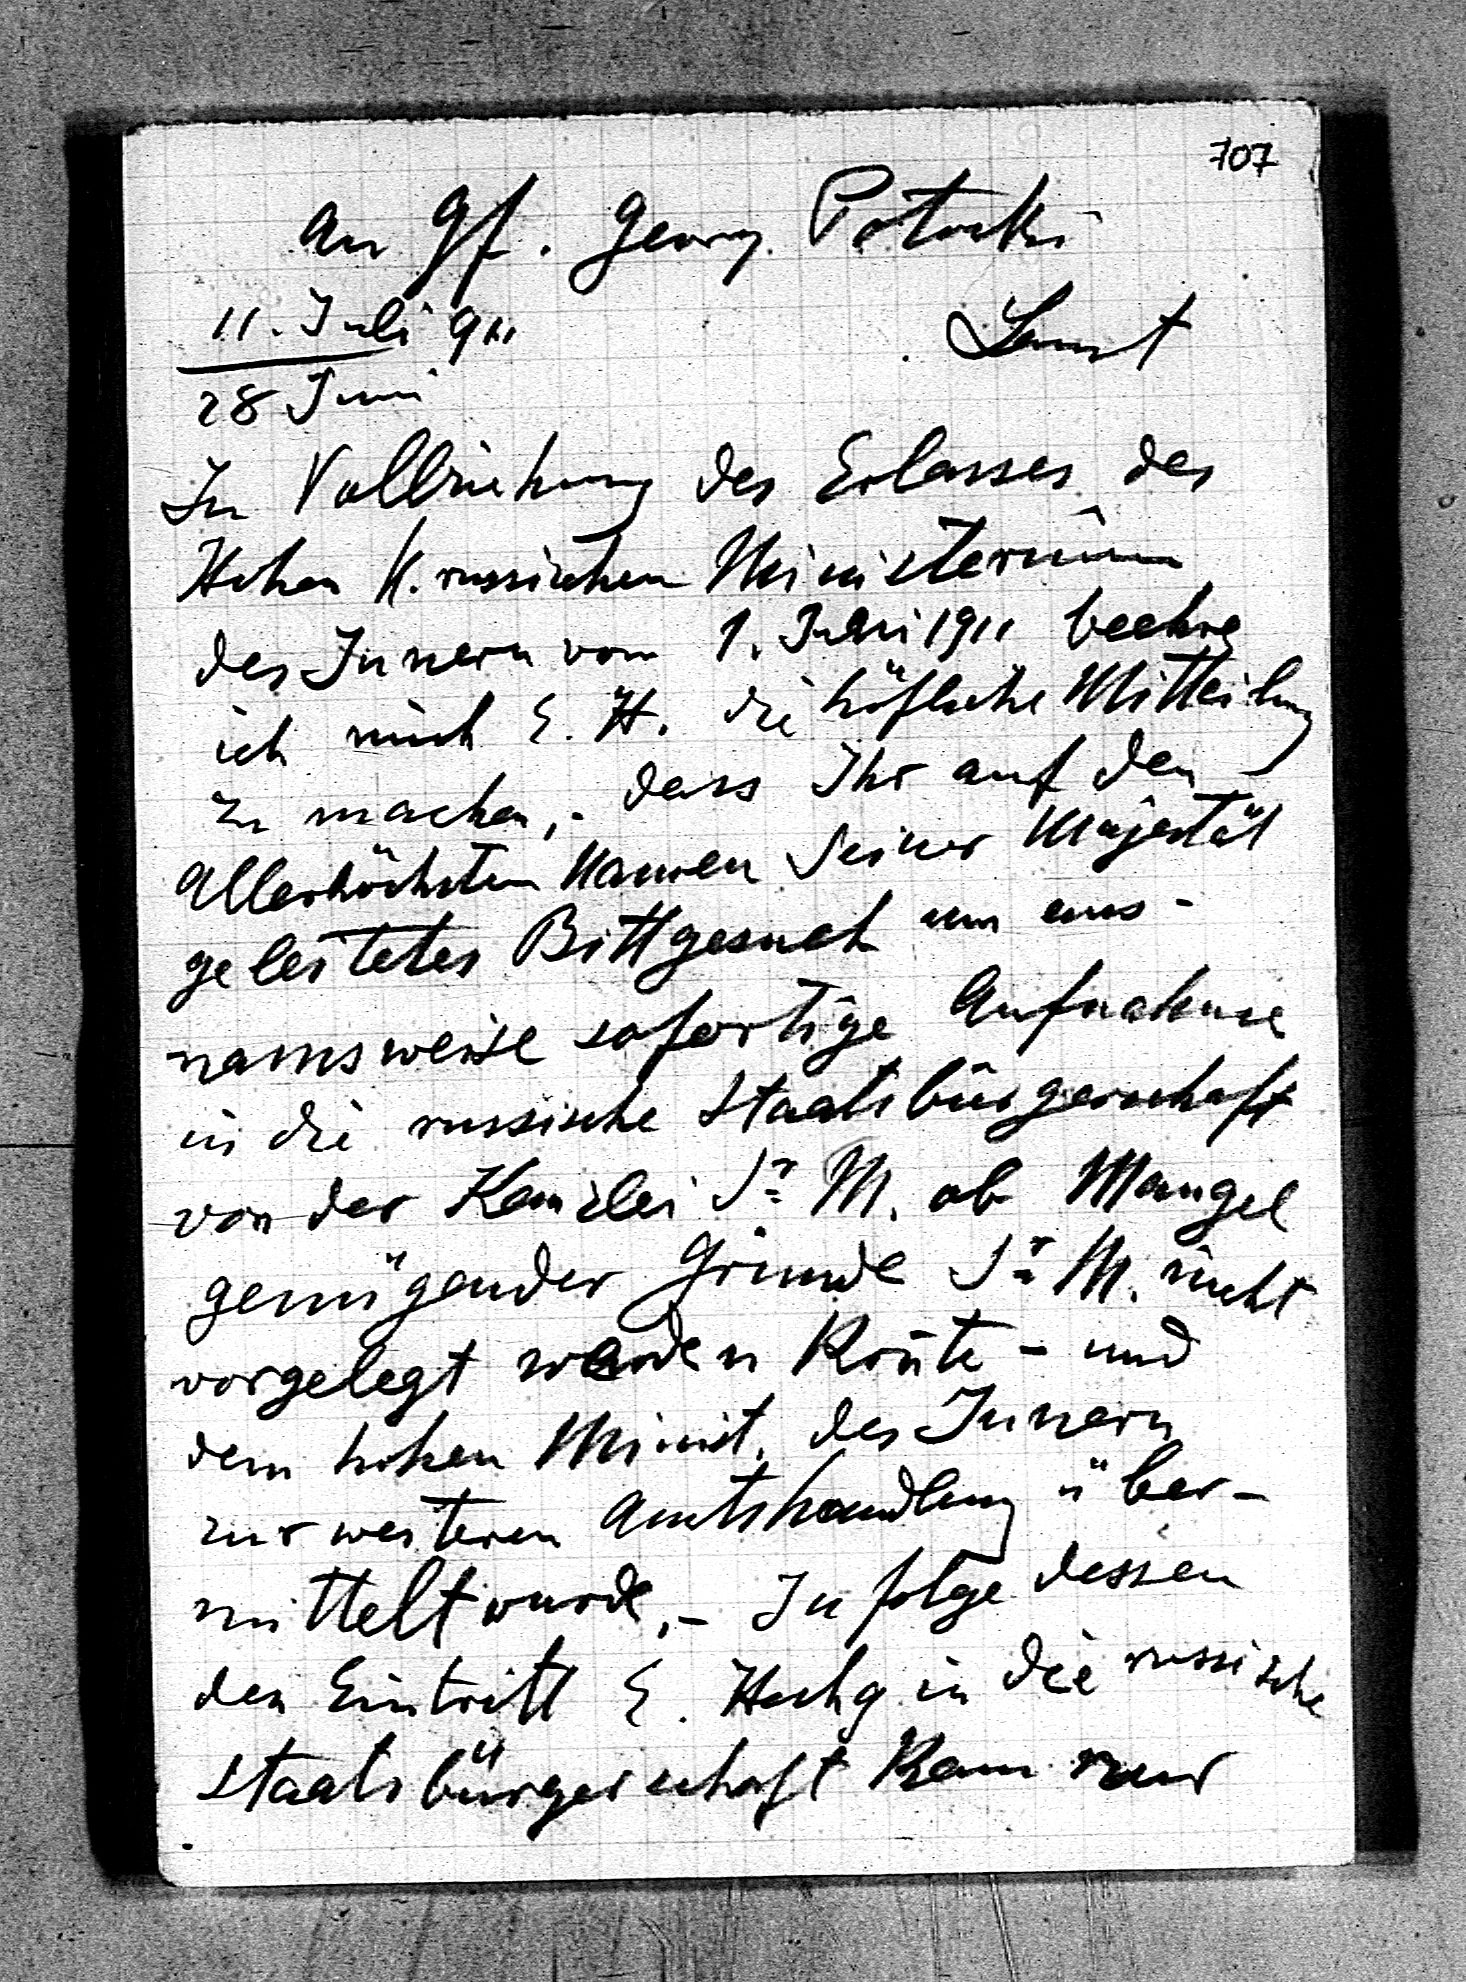 707
An Gf. Georg Potocki
11. Juli 911
28 Juni
In Vollziehung des Erlasses des
Hohen K. russischen Ministeriums
des Innern vom 1. Juni 1911 beehre
ich mich E. H. die höfliche Mitteilung
zu machen,- dass Ihr auf den
Allerhöchsten Namen Seiner Majestät
geleitetes Bittgesuch um aus-
namsweise sofortige Aufnahme
in die russische Staatsbürgerschaft
von der Kanzlei Sr M. ob Mangel
genügender Gründe Sr M. nicht
vorgelegt werden konte - und
dem hohen Minist. des Innern
zur weiteren Amtshandlung über-
mittelt wurde,- In folge dessen
den Eintritt E. Hochg in die russische
Staatsbürgerschaft kann nur